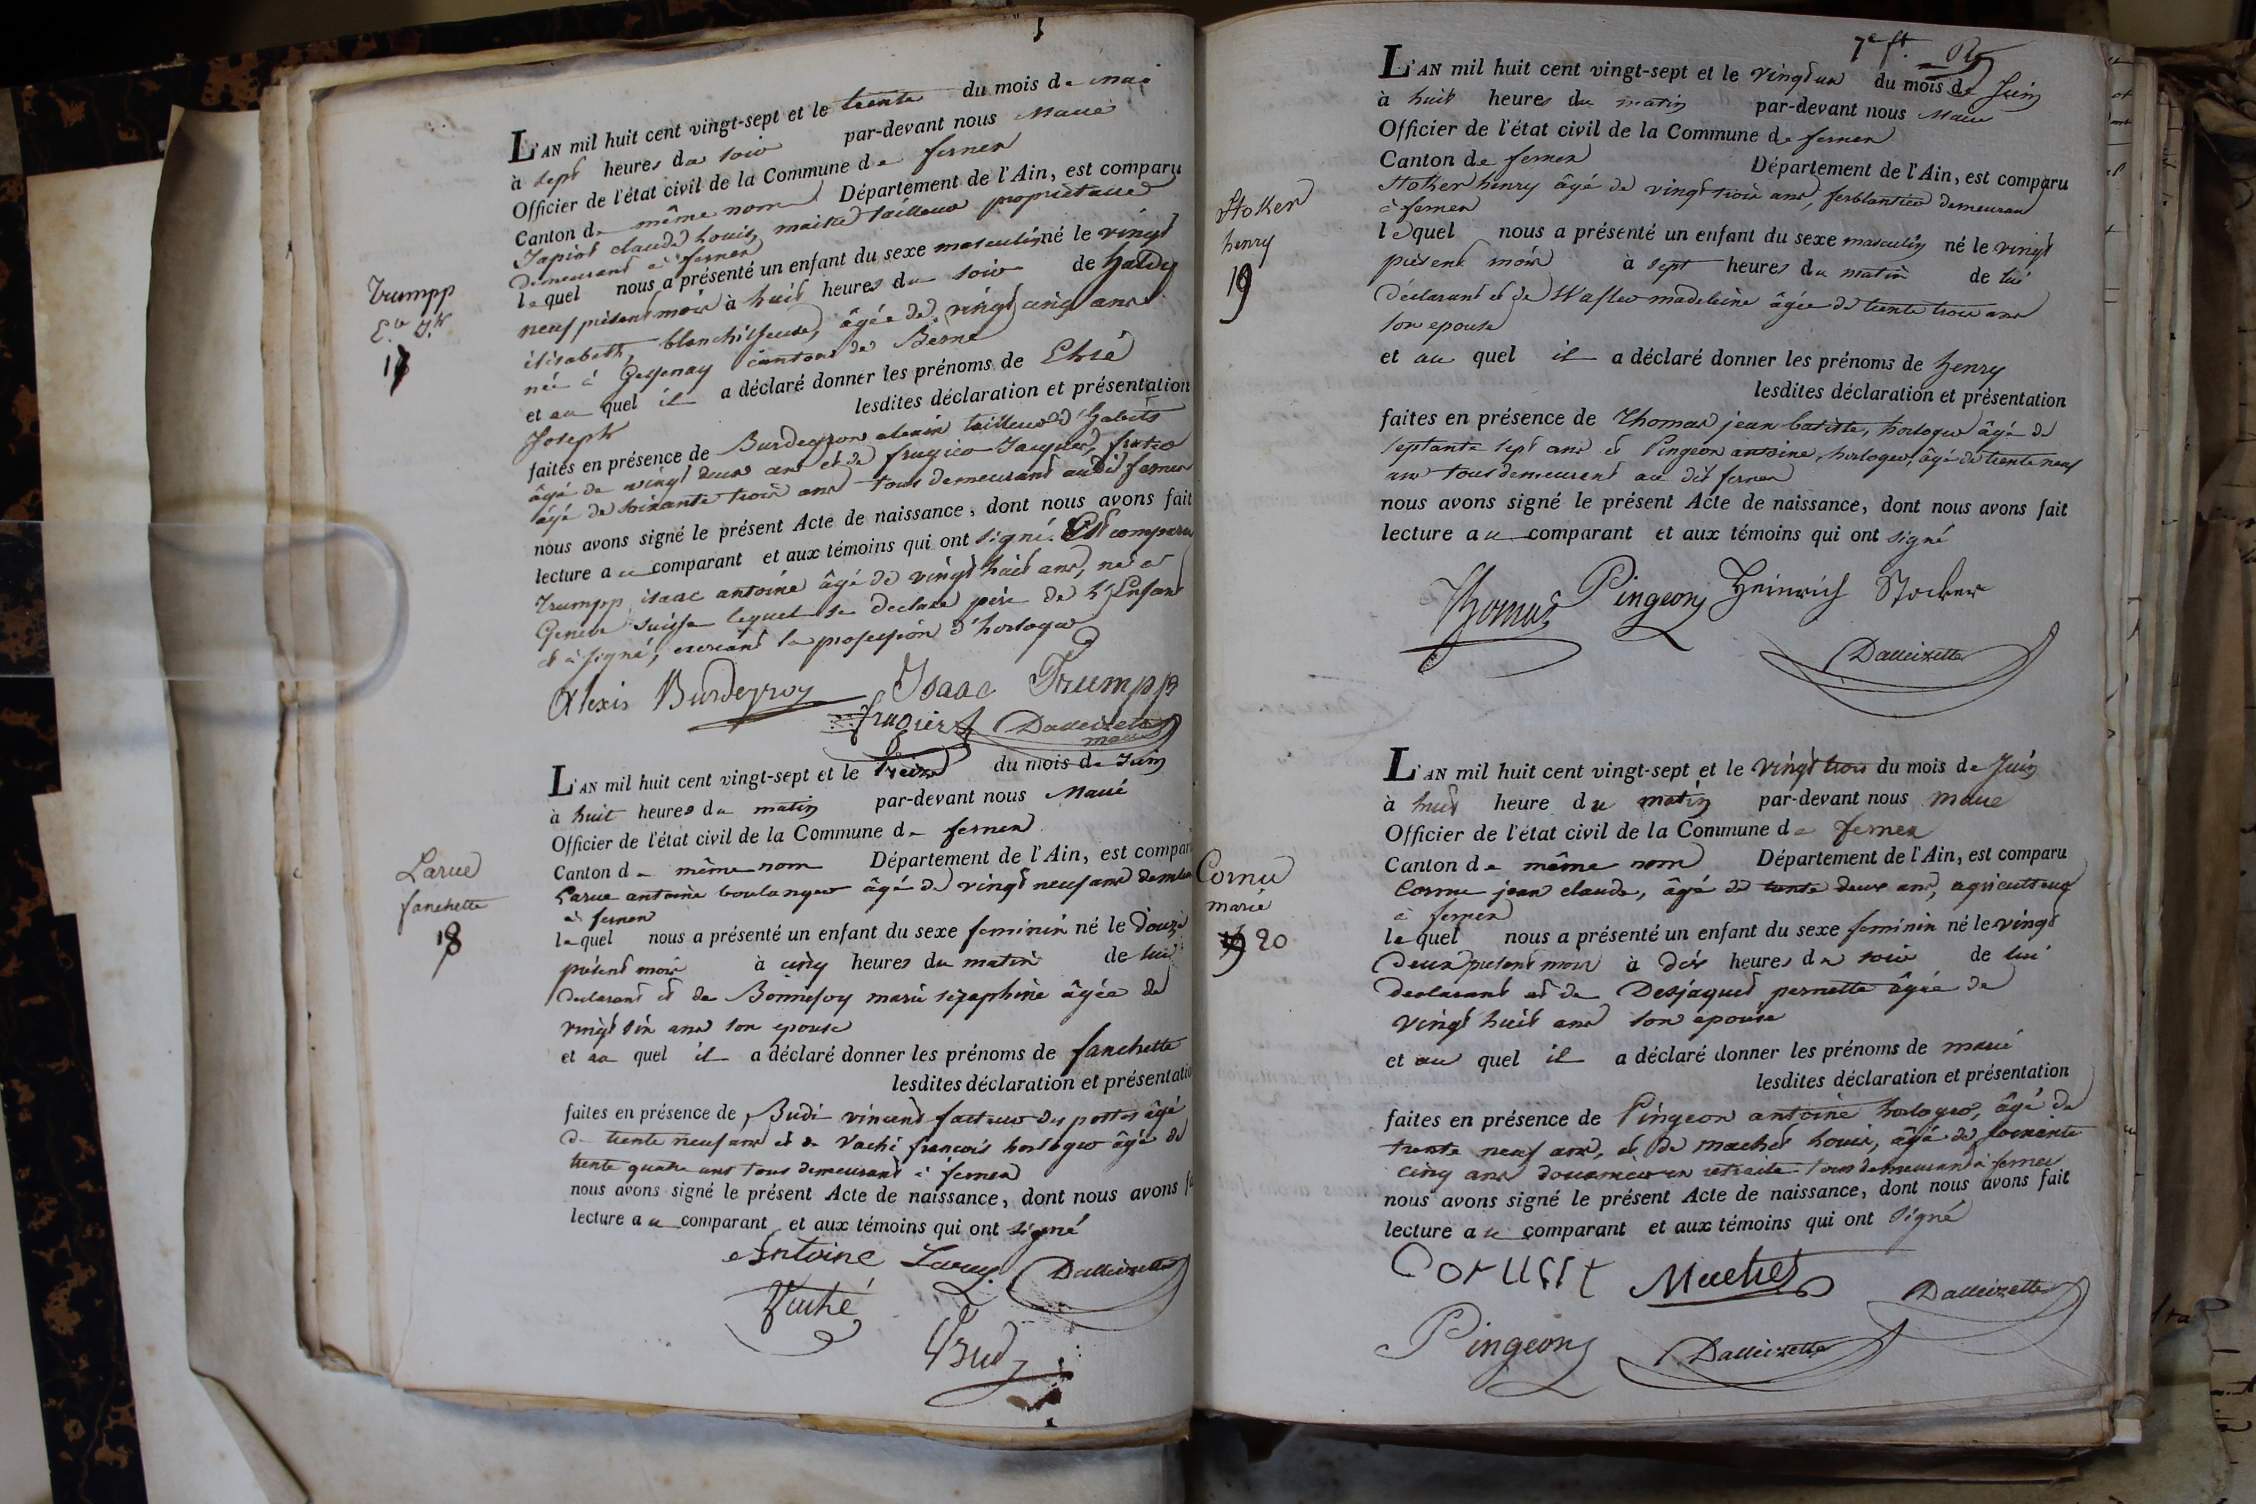 L'AN mil huit cent vingt-sept et le trente du mois de mai
à sept heures du soir par-devant nous Maire
Officier de l'état civil de la Commune de ferney
Canton de même nom Département de l'Ain, est comparu
Tapiot claude Louis, maitre tailleur propriétaire
demeurant à ferney
lequel nous a présenté un enfant du sexe masculin né le vingt
neuf présent mois à huit heures du soir de haldy
élisabeth, blanchisseuse, âgée de vingt cinq ans
née à Gessenay canton de Berne
et au quel il a déclaré donner les prénoms de
Joseph lesdites déclaration et présentation
faites en présence de Burdeyron alexis tailleur d'habits
âgé de vingt deux ans et de frugier Jacques,
âgé de soixante trois ans tous demeurant au dit ferney
nous avons signé le présent Acte de naissance, dont nous avons fait
lecture au comparant et aux témoins qui ont signé. Est comparu
Trumpp isaac antoine âgé de vingt huit ans, né à
Geneve suisse lequel se declare père de l'Enfant
et à signé, exercant la profession d'horloger
Trumpp
17
Alexis Burdeyron Isaac Trumpp
frugier Dalleizette
maire
L'AN mil huit cent vingt-sept et le treize du mois de Juin
à huit heures du matin par-devant nous Maire
Officier de l'état civil de la Commune de ferney
Canton de même nom Département de l'Ain, est comparu
Larue antoine boulanger âgé de vingt neuf ans
à ferney
lequel nous a présenté un enfant du sexe feminin né le douze
présent mois à cinq heures du matin de lui
declarant et de Bonnefoy marie séraphine âgée de
vingt six ans son epouse
et au quel il a déclaré donner les prénoms de fanchette
lesdites déclaration et présentation
faites en présence de Budé vincent facteur des postes âgé
de trente neuf ans et de Vaché francois horloger âgé de
trente quatre ans tous demeurant à ferney
nous avons signé le présent Acte de naissance, dont nous avons
lecture au comparant et aux témoins qui ont signé
Larue
fanchette
18
Antoine Larue Dalleizette
Vaché
Bud
7e ft.
L'AN mil huit cent vingt-sept et le vingt un du mois de Juin
à huit heures du matin par-devant nous Maire
Officier de l'état civil de la Commune de ferney
Canton de ferney Département de l'Ain, est comparu
Stoker henry âgé de vingt trois ans, ferblantier demeurant
à ferney
lequel nous a présenté un enfant du sexe masculin né le vingt
présent mois à sept heures du matin de lui
déclarant et de Wasler madeleine âgée de trente trois ans
son epouse
et au quel il a déclaré donner les prénoms de henry
lesdites déclaration et présentation
faites en présence de Thomas jean batiste, horloger âgé de
septante sept ans et Pingeon antoine, horloger, âgé de trente neuf
ans tous demeurent au dit ferney
nous avons signé le présent Acte de naissance, dont nous avons fait
lecture au comparant et aux témoins qui ont signé
Stoker
henry
19
Thomas Pingeon Heinrich Stocker
Dalleizette
L'AN mil huit cent vingt-sept et le vingt trois du mois de Juin
à huit heure du matin par-devant nous maire
Officier de l'état civil de la Commune de ferney
Canton de même nom Département de l'Ain, est comparu
Cornu jean claude, âgé de trente deux ans, agriculteur
à ferney
lequel nous a présenté un enfant du sexe feminin né le vingt
deux présent mois à dix heures du soir de lui
declarant et de Desjaques pernette âgée de
vingt huit ans son epouse
et au quel il a déclaré donner les prénoms de marie
lesdites déclaration et présentation
faites en présence de Pingeon antoine horloger, âgé de
trente neuf ans, et de machet Louis, âgé de soixante
cinq ans douanier en retraite tous demeurant à ferney
nous avons signé le présent Acte de naissance, dont nous avons fait
lecture au comparant et aux témoins qui ont signé
Cornu
marie
20
Machet Dalleizette
Pingeon Dalleizette